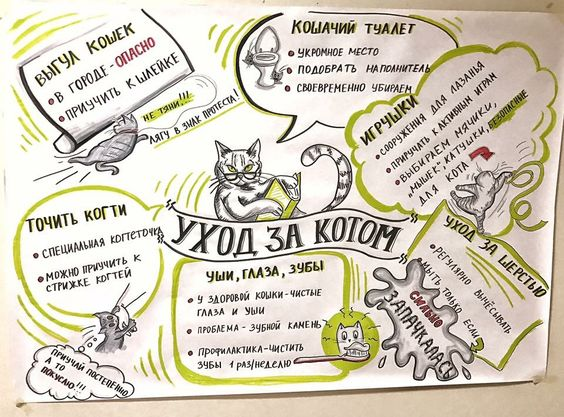 ВЫГУЛ КОШЕК
• В ГОРОДЕ-ОПАСНО
• ПРИУЧИТЬ К ШЛЕЙКЕ
НЕ ТЯНИ!!!
ЛЯГУ В ЗНАК ПРОТЕСТА!
КОШАЧИЙ ТУАЛЕТ
• УКРОМНОЕ МЕСТО
• ПОДОБРАТЬ НАПОЛНИТЕЛЬ
• СВОЕВРЕМЕННО УБИРАЕМ
ИГРУШКИ
• СООРУЖЕНИЯ ДЛЯ ЛАЗАНЬЯ
• ПРИУЧАТЬ К АКТИВНЫМ ИГРАМ
• ВЫБИРАЕМ МЯЧИКИ,
„МЫШЕК", КАТУШКИ, БЕЗОПАСНЫЕ
ДЛЯ КОТА
УХОД ЗА КОТОМ
ТОЧИТЬ КОГТИ
• СПЕЦИАЛЬНАЯ КОГТЕТОЧКА
• МОЖНО ПРИУЧИТЬ К
СТРИЖКЕ КОГТЕЙ
ПРИУЧАЙ ПОСТЕПЕННО,
ТО
ПОКУСАЮ!!!
УШИ, ГЛАЗА, ЗУБЫ
• У ЗДОРОВОЙ КОШКИ-ЧИСТЫЕ
ГЛАЗА И УШИ
• ПРОБЛЕМА - ЗУБНОЙ КАМЕНЬ
• ПРОФИЛАКТИКА-ЧИСТИТЬ
ЗУБЫ 1 РАЗ/НЕДЕЛЮ
УХОД ЗА ШЕРСТЬЮ
• РЕГУЛЯРНО ВЫЧЁСЫВАТЬ
• МЫТЬ ТОЛЬКО ЕСЛИ
СИЛЬНО
ЗАПАЧКАЛАСЬ